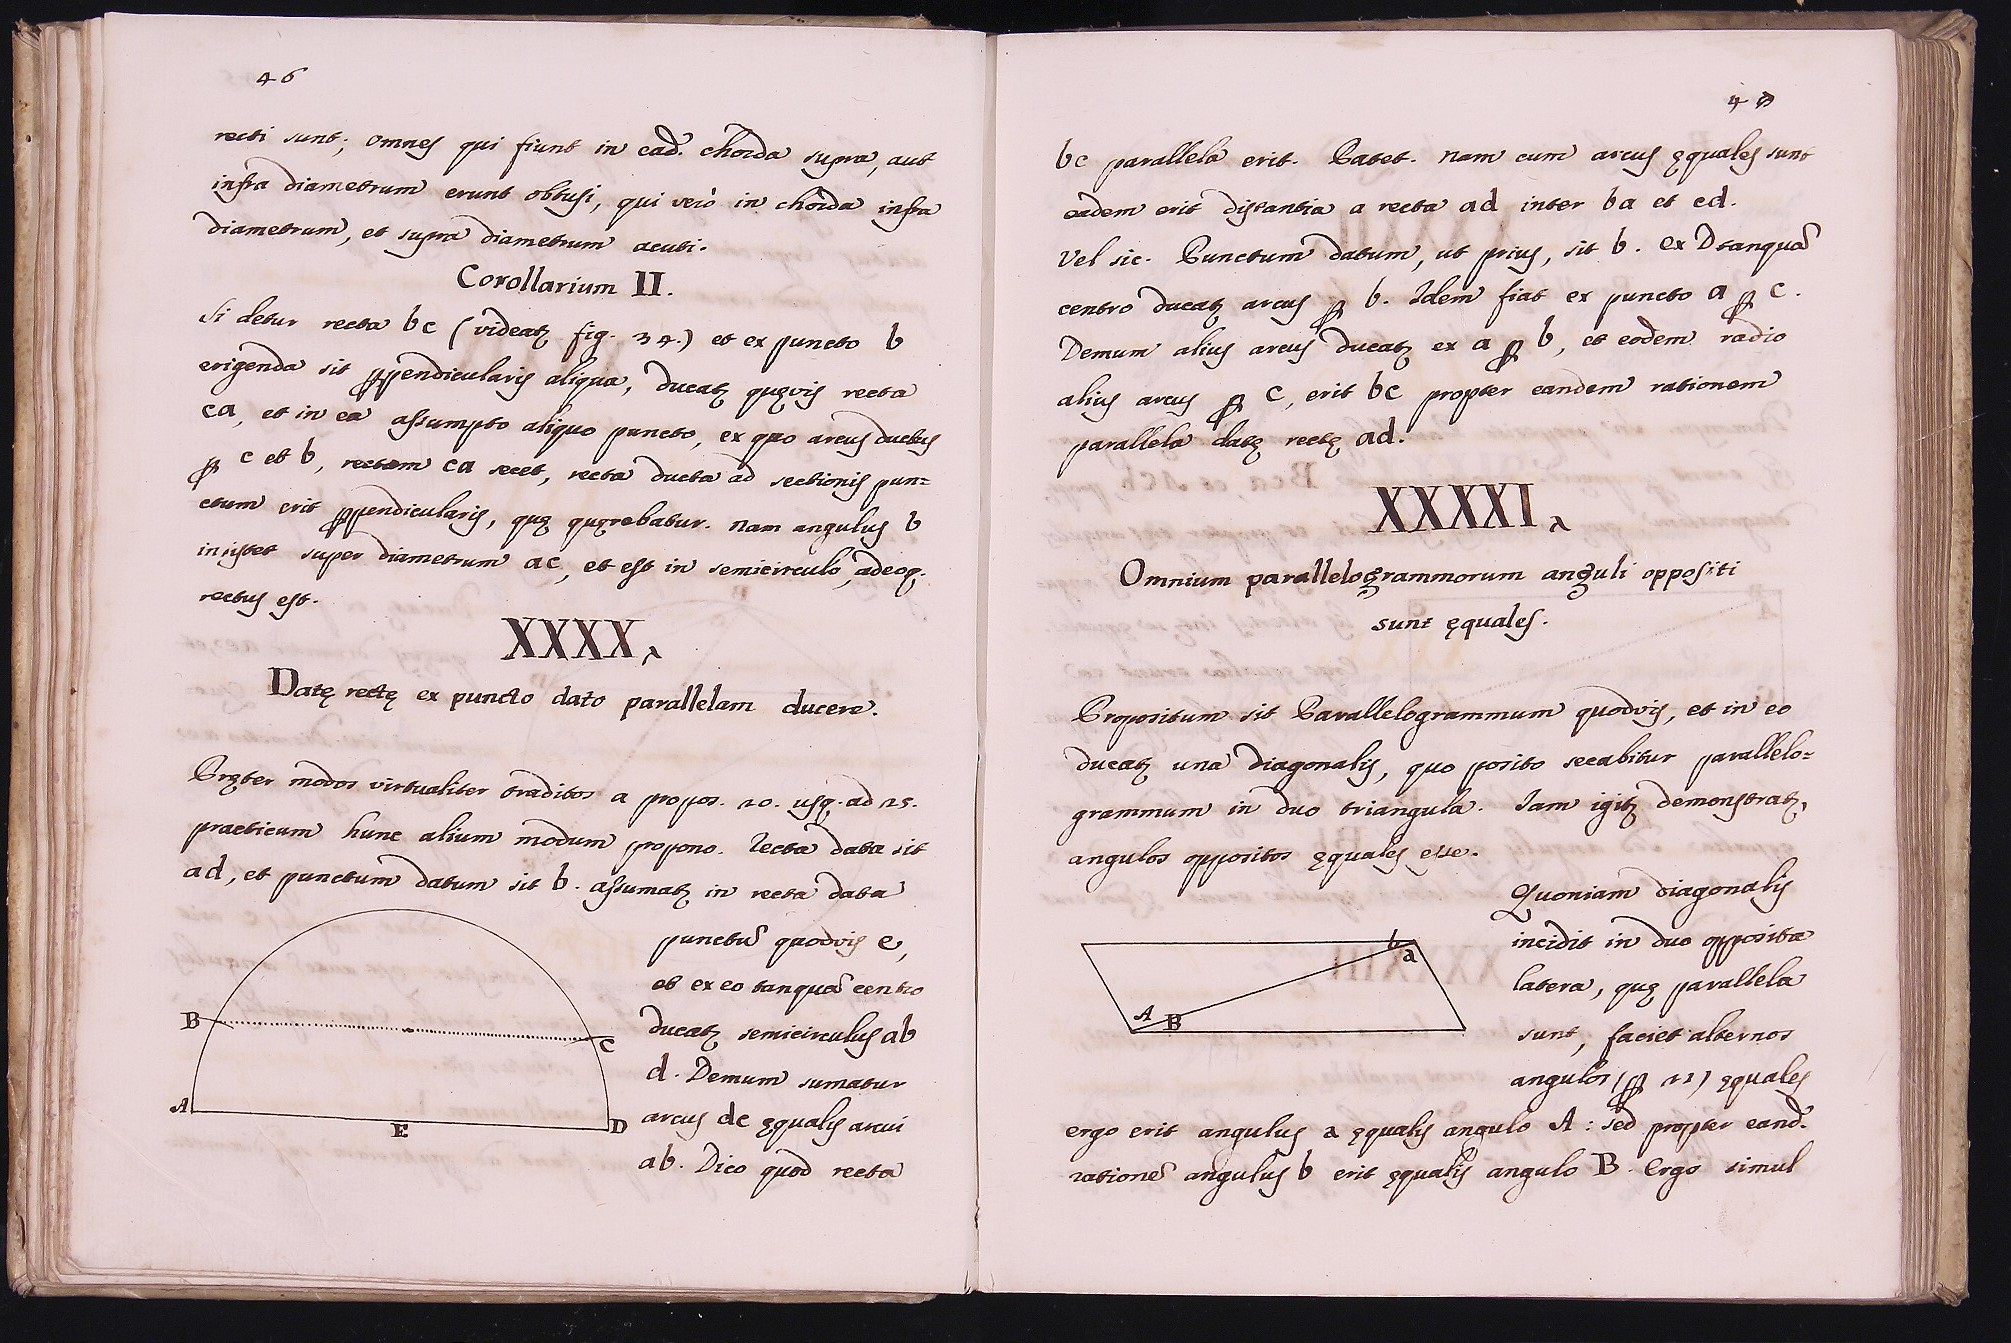 46
recti sunt; omnes qui fiunt in ead. chorda supra, aut
infra diametrum erunt obtusi, qui verò in chorda infra
diametrum, et supra diametrum acuti.
Corollarium II.
Si detur recta bc (videatꝫ fig. 34.) et ex puncto b
erigenda sit ꝑpendicularis aliqua, ducatꝫ quęvis recta
ca, et in ea assumpto aliquo puncto, ex quo arcus ductus
ꝑ c et b, rectam ca secet, recta ducta ad sectionis pun=
ctum erit ꝑpendicularis, quę quęrebatur. nam angulus b
insistet super diametrum ac, et est in semicirculo, adeoq.
rectus est.
XXXX.
Datę rectę ex puncto dato parallelam ducere.
Pręter modos virtualiter traditos a propos. 20. usq. ad 25.
practicum hunc alium modum propono. Recta data sit
ad, et punctum datum sit b. assumatꝫ in recta data
punctũ quodvis e,
et ex eo tanquã centro
ducatꝫ semicirculus ab
d. Demum sumatur
arcus dc ęqualis arcui
ab. Dico quod recta
B
C
A
E
D
47
bc parallela erit. Patet. nam cum arcus ęquales sunt
eadem erit distantia a recta ad inter ba et cd.
Vel sic. Punctum datum, ut prius, sit b. ex D tanquã
centro ducatꝫ arcus ꝑ b. Idem fiat ex puncto a ꝑ c.
Demum alius arcus ducatꝫ ex a ꝑ b, et eodem radio
alius arcus ꝑ c, erit bc propter eandem rationem
parallela datę rectę ad.
XXXXI.
Omnium parallelogrammorum anguli oppositi
sunt ęquales.
Propositum sit Parallelogrammum quodvis, et in eo
ducatꝫ una diagonalis, quo posito secabitur parallelo=
grammum in duo triangula. Iam igitꝫ demonstratꝫ,
angulos oppositos ęquales esse.
Quoniam diagonalis
incidit in duo opposita
latera, quę parallela
sunt, faciet alternos
angulos (ꝑ 22) ęquales
b
a
A
B
ergo erit angulus a ęqualis angulo A: sed propter eand.
rationẽ angulus b erit ęqualis angulo B. Ergo simul